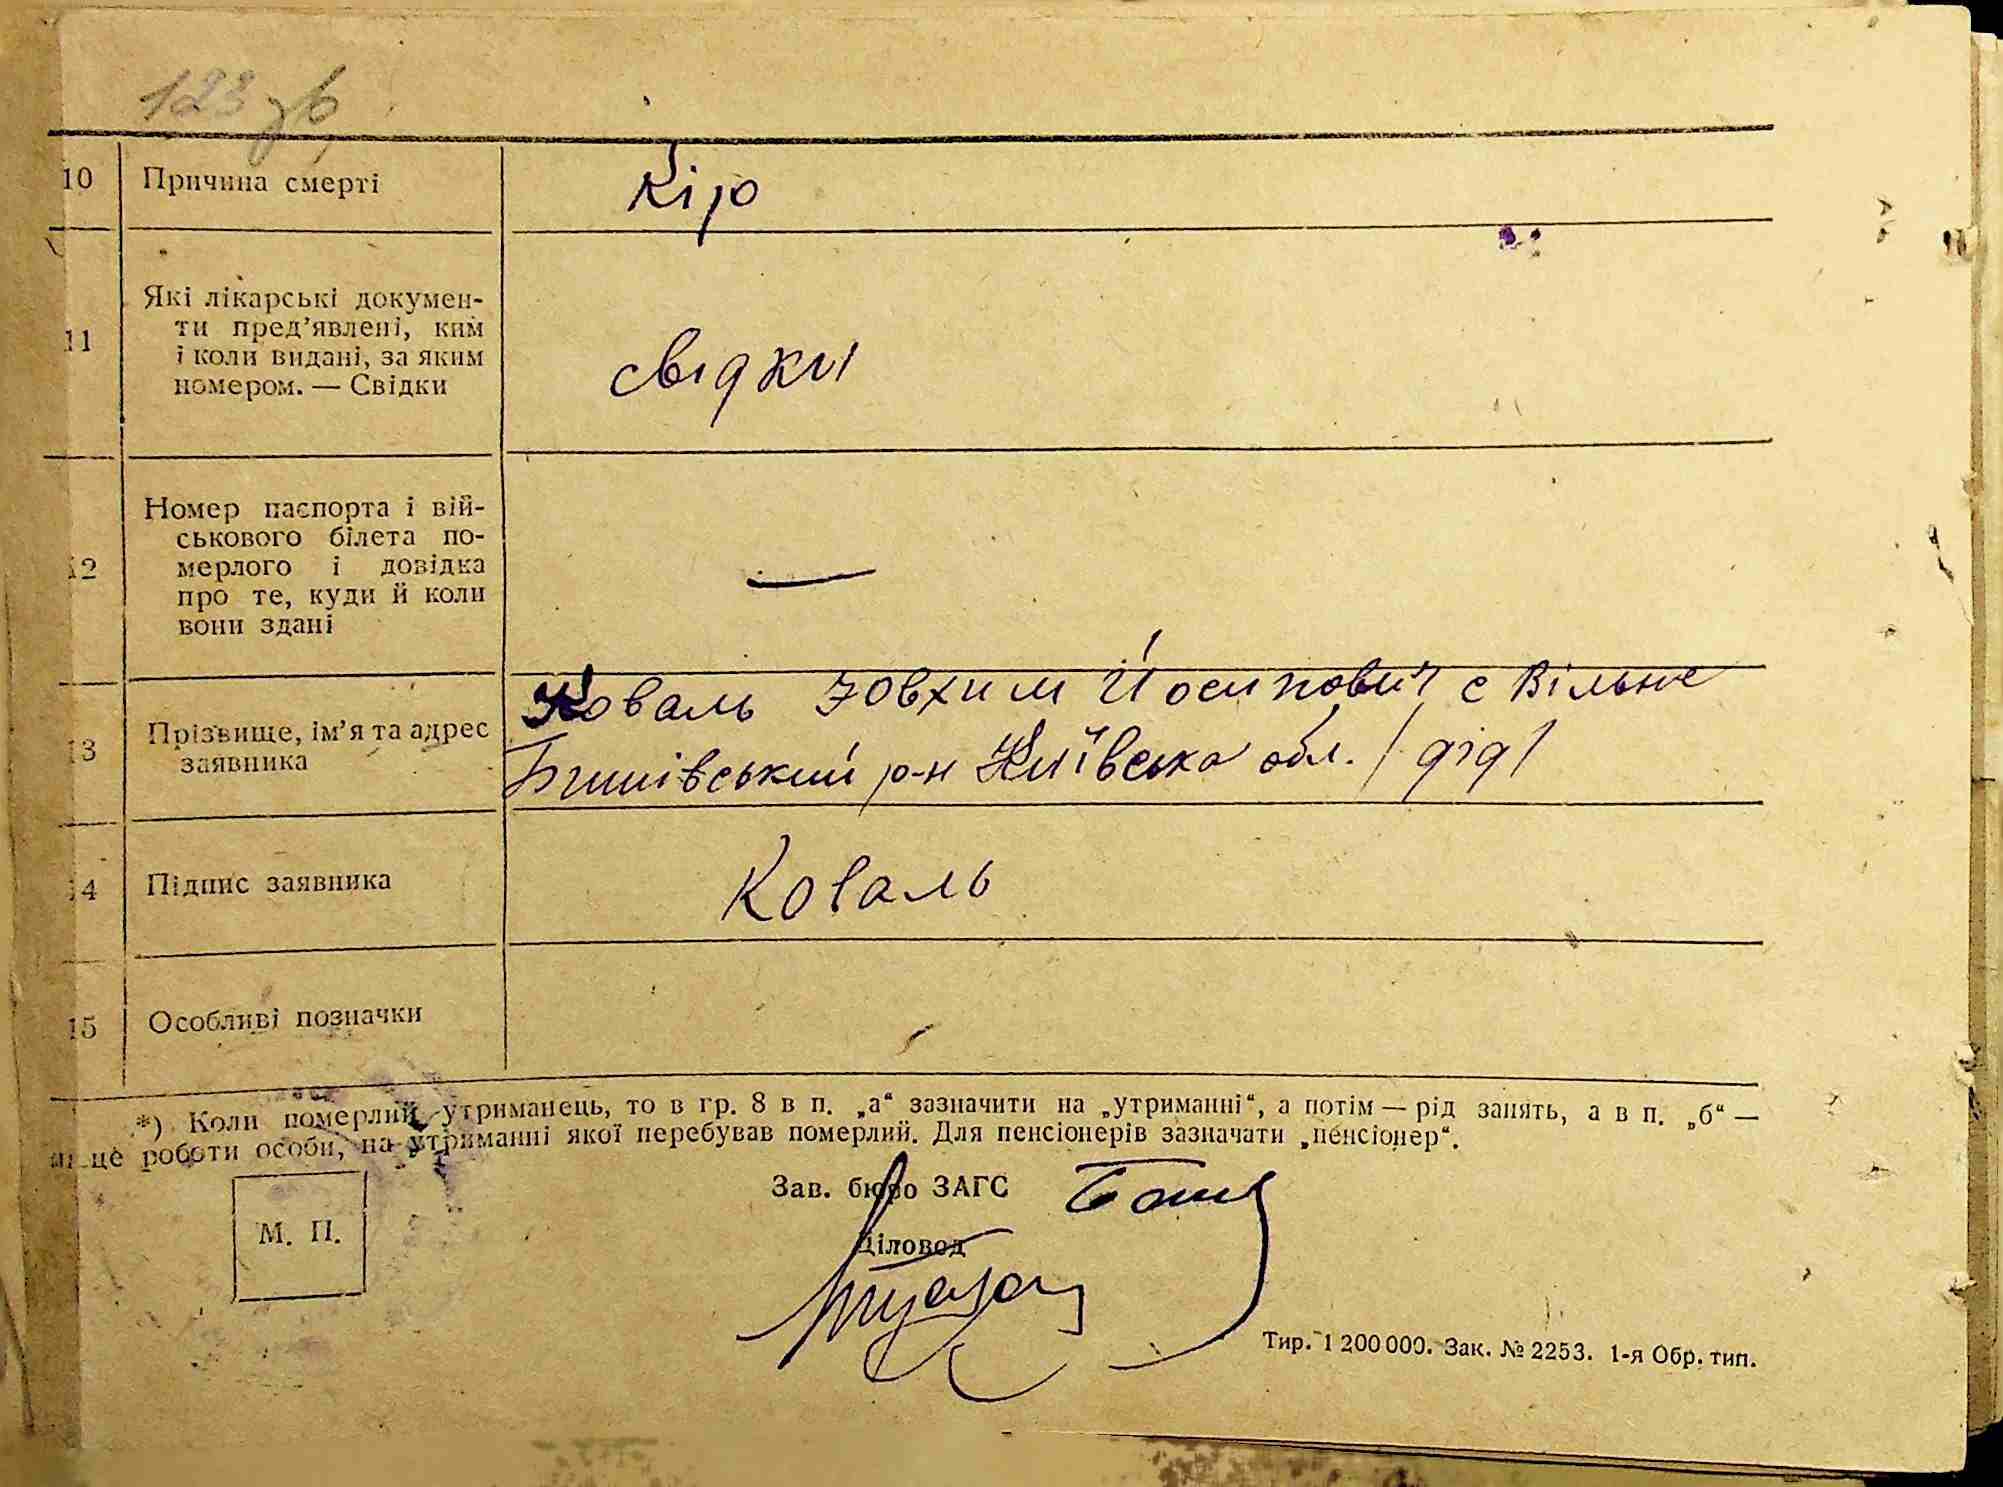 123 зв
10 Причина смерті Кір
11 Які лікарські докумен-
ти пред’явлені, ким
і коли видані, за яким
номером. — Свідки
свідки
12 Номер паспорта і вій-
ськового білета по-
мерлого і довідка
про те, куди й коли
вони здані
—
13 Прізвище, ім’я та адрес
заявника
Коваль Эовхим Йосипович с Вільне
Бишівський р-н Київська обл. /дід/
14 Підпис заявника Коваль
15 Особливі позначки
*) Коли померлий утриманець, то в гр. 8 в п. „а“ зазначити на „утриманні“, а потім — рід занять, а в п. „б“ —
місце роботи особи, на утриманні якої перебував померлий. Для пенсіонерів зазначати „пенсіонер“.
Зав. бюро ЗАГС
М. П.
Діловод
Тир. 1 200 000. Зак. № 2253. 1-я Обр. тип.